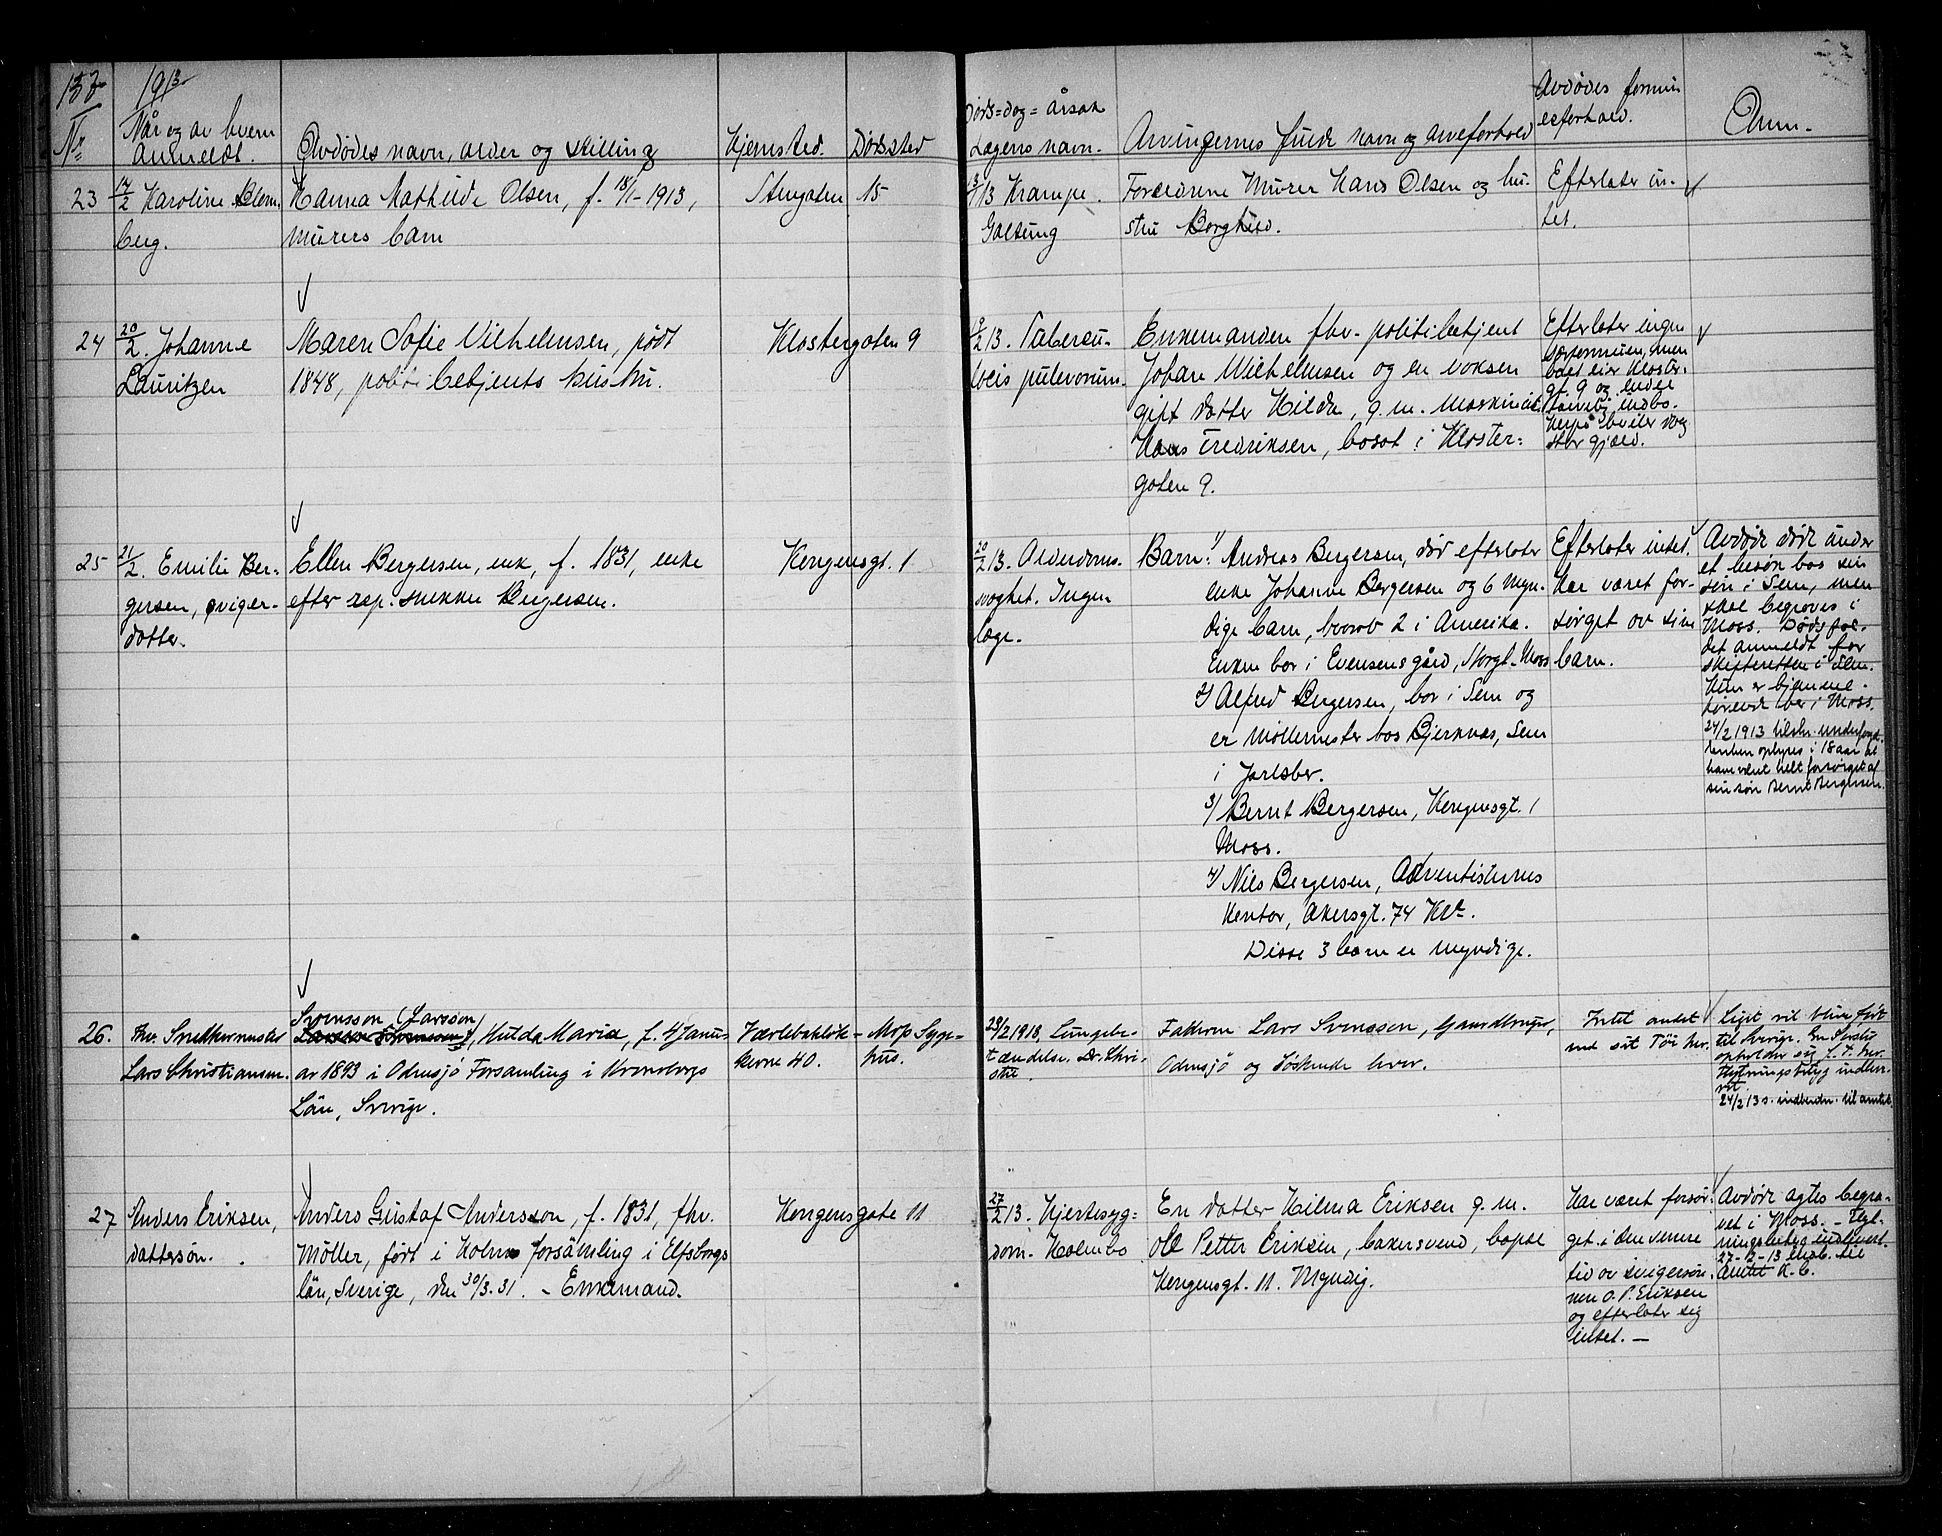 153
1913
Nr.
Når og av hvem
anmeldt.
Avdødes navn, alder og stilling
Hjemsted.
Dødssted
Døds=dag=årsak
Lægens navn.
Arvingernes fulde navn og arveforhold
Avdødes formu-
esforhold.
Anm.
23
14/2 Karoline Blom-
berg.
Hanna Mathilde Olsen, f. 18/1-1913,
murers barn
Stengaten 15
13 Krampe.
Galtung
Forældrene Murer Hans Olsen og hu-
stru Borghild.
Efterlater in-
tet.
24
20/2. Johanne
Lauritzen
Maren Sofie Vilhelmsen, født
1848, politibetjents hustru.
Klostergaten 9
19/2 13. Tubercu-
locis pulmonum.
Enkemanden fhv. politibetjent
Johan Wilhelmsen og en voksen
gift datter Hilda, g. m. maskinist
Hans Fredriksen, bosat i Kloster-
gaten 9.
Efterlater ingen
særformuen, men
boet eier Kloster-
gt 9 og endel
indbo.
Herpå hviler dog
stor gjæld.
25
21/2. Emilie Ber-
gersen, sviger-
datter.
Ellen Bergersen, enk, f. 1831, enke
efter rep. snekker Bergersen.
Kongensgt. 1
20/2 13. Alderdoms-
svaghet. Ingen
læge.
Barn: 1/ Andreas Bergersen, død efterlater
enke Johanne Bergersen og 6 myn-
dige barn, hvorav 2 i Amerika.
Enken bor i Evensensgård, Storgt. Moss
2/ Alfred Bergersen, bor i Sem og
er møllemester hos Bjerknæs, Sem
i Jarlsber.
3/ Bernt Bergersen, Kongensgt. 1
Moss.
4/ Nils Bergersen, Adventisternes
Kontor, Akersgt. 74 Kra.
Disse 3 barn er myndige.
Efterlater intet.
Har været for-
sørget av sine
barn.
Avdøde døde under
et besøk hos sin
søn i Sem, men
skal begraves i
Moss. Dødsfal-
det anmeldt for
skifteretten i Sem.
Hun er hjemme-
hørende her i Moss.
24/2 1913
opl­yses i 18 aar at
have været helt forsørget af
sin søn Bernt Bergersen.
26.
fhv. Snedkermester
Lars Christiansen.
Svensson (Larsson)
Hulda Maria, f. 4 Janu-
ar 1893 i Odensjö Forsamling i Kronobergs
Län, Sverige.
Værlebaklök-
kerne 40.
Moss Syge-
hus.
23/2 1913, Lungebe-
tændelse. Dr. Chri-
stie.
Faderen Lars Svensson, Gaardbruger,
Odensjö og Söskende hver.
Intet andet
end sit Töi her.
Liget vil blive ført
til Sverige. En Søster
opholder sig f. t. her.
Flytningsbevis indleve-
ret.
24/2 13 s. indberetn. til amtet.
27
Anders Eriksen,
dattersøn.
Anders Gustaf Andersson, f. 1831, fhv.
Möller, født i Holms forsamling i Elfsborgs
län, Sverige, den 30/3.31. - Enkemand.
Kongensgate 11
27/2 13. Hjertesyg-
dom. Holmbo
En datter Hilma Eriksen g. m.
Ole Petter Eriksen, bakersvend, bopæl
Kongensgt. 11. Myndig.
Har været forsør-
get i den senere
tid av svigersøn-
nen O. P. Eriksen
og efterlater sig
intet. -
Avdøde agtes begra-
vet i Moss. - Flyt-
ningsbetyg indlevert.
27-2-13 indb. til
Amtet K. C.